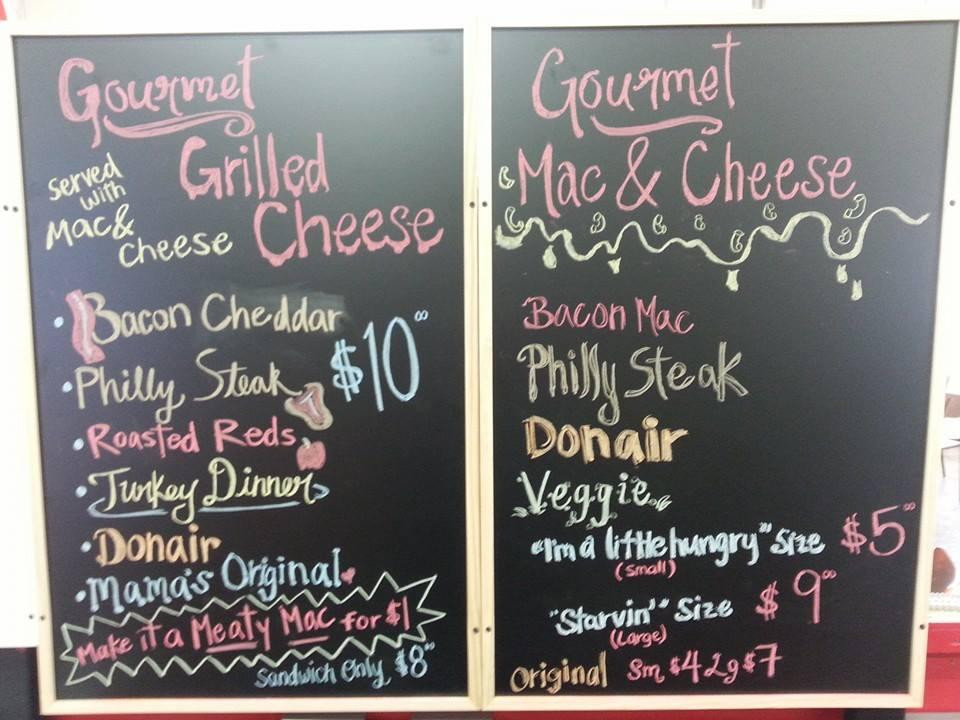 Gourmet
Grilled
Cheese
Served
with
Mac&
Cheese
• Bacon Cheddar
$10⁰⁰
• Philly Steak
• Roasted Reds
• Turkey Dinner
• Donair
• Mama's Original
Make it a Meaty Mac for $1
Sandwich Only $8⁰⁰
Gourmet
Mac & Cheese
Bacon Mac
Philly Steak
Donair
Veggie
"I'm a little hungry" Size $5⁰⁰
(Small)
"Starvin'" Size $9⁰⁰
(Large)
Original Sm $4 Lg $7